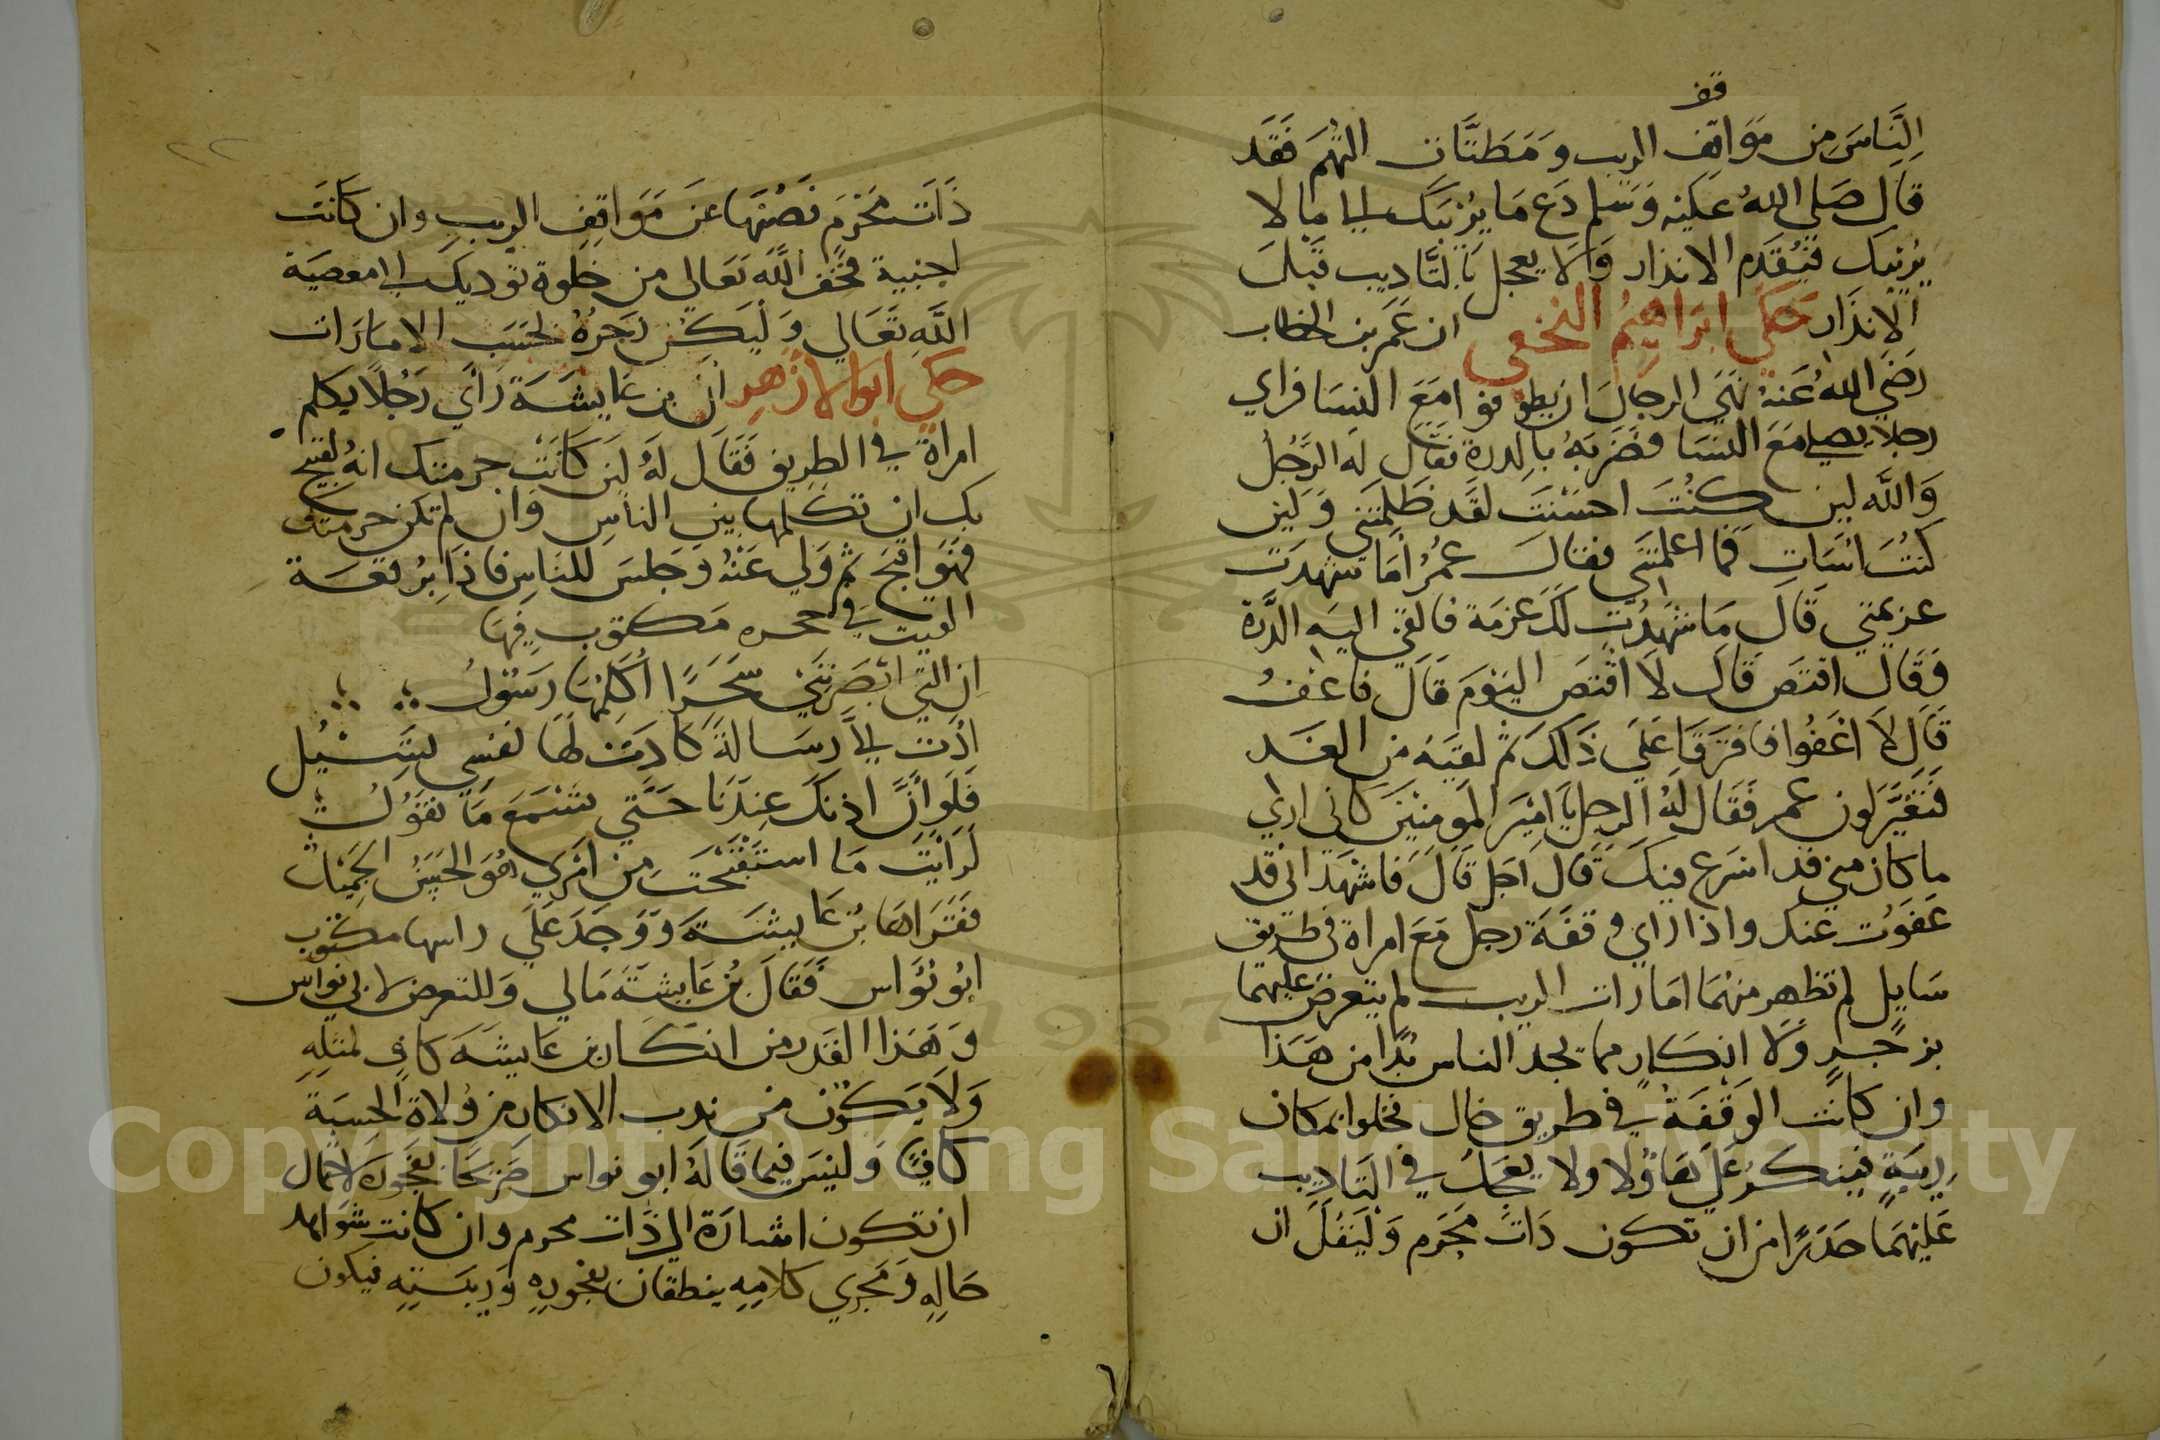 قف
الناس من مواقف الريب ومظنات التهم فقد
قال صلى الله عليه وسلم دع ما يريبك الى ما لا
يريبك فيقدم الانذار ولا يعجل بالتاديب قبل
الانذار حكى ابراهيم النخعي ان عمر بن الخطاب
رضى الله عنه نهى الرجال ان يطوفوا مع النسا فراي
رجلا يصلي مع النسا فضربه بالدرة فقال له الرجل
والله لين كنت احسنت لقد ظلمتني ولين
كنت اسات فما اعلمتني فقال عمر أما شهدت
عزيمتي قال ما شهدت لك عزمة فالقى اليه الدرة
وقال اقتص قال لا اقتص اليوم قال فاعف
قال لا اعفوا فافترقا على ذلك ثم لقيه من الغد
فتغير لون عمر فقال له الرجل يا امير المومنين كاني ارى
ما كان مني قد اسرع فيك قال اجل قال فاشهد اني قد
عفوت عنك واذا راي وقفة رجل مع امراة في طريق
سايل لم تظهر منهما امارات الريب لم يتعرض عليهما
بزجر ولا انكار مما يجد الناس بدا من هذا
وان كانت الوقفة في طريق خال فخلوا بمكان
ريبة فينكر على هاولا ولا يعجل في التاديب
عليهما حذرا من ان تكون ذات محرم وليقل ان
ذات محرم فصنها عن مواقف الريب وان كانت
اجنبية فخف الله تعالى من خلوة توديك الى معصية
الله تعالي وليكن زجره بحسب الامارات
حكي ابو الازهر ان بن عايشة راي رجلا يكلم
امراة في الطريق فقال له لين كانت حرمتك انه لقبيح
بك ان تكلمها بين الناس وان لم تكن حرمتك
فهو اقبح ثم ولي عنه وجلس للناس فاذا برقعة
القيت في حجره مكتوب فيها
ان التي ابصرتني سحرا اكلمها رسول
ادت الي رسالة كادت لها نفسي تسيل
فلو ان اذنك عندنا حتي تسمع ما نقول
لرايت ما استقبحت من امري هو الحسن الجميل
فقراها بن عايشة ووجد على راسها مكتوب
ابو نواس فقال بن عايشة مالي وللتعرض لابي نواس
وهذا القدر من انكار بن عايشة كاف لمثله
ولا يكون من ندب الانكار من ولاة الحسبة
كافيا وليس فيما قاله ابو نواس صريحا بفجور لاحتمال
ان تكون اشارة الى ذات محرم وان كانت شواهد
حاله ومجري كلامه ينطقان بفجوره وريبته فيكون